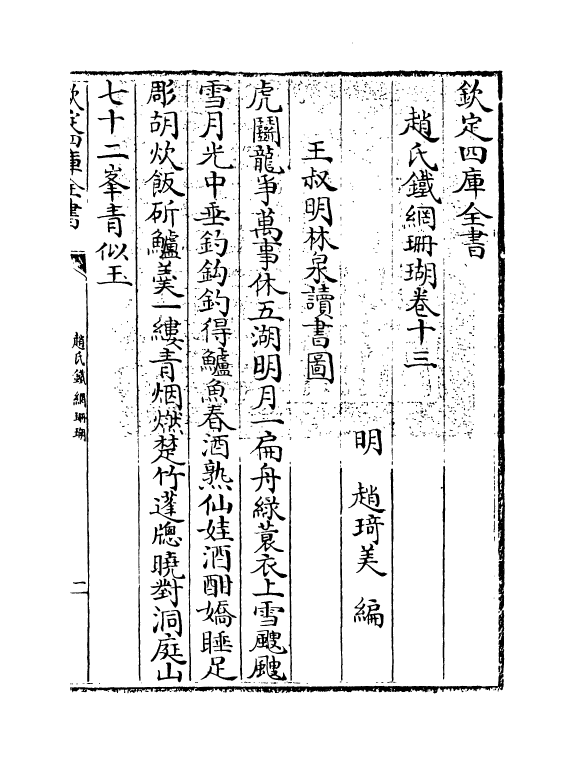 欽定四庫全書
趙氏鐵網珊瑚卷十三
明 趙琦美 編
王叔明林泉讀書圖
虎鬭龍爭萬事休五湖明月一扁舟綠蓑衣上雪颼颼
雪月光中垂釣鈎釣得鱸魚春酒熟仙娃酒酣嬌睡足
彫胡炊飯斫鱸羮一縷青烟燃楚竹蓬牕曉對洞庭山
七十二峯青似玉
欽定四庫全書
趙氏鐵網珊瑚
二